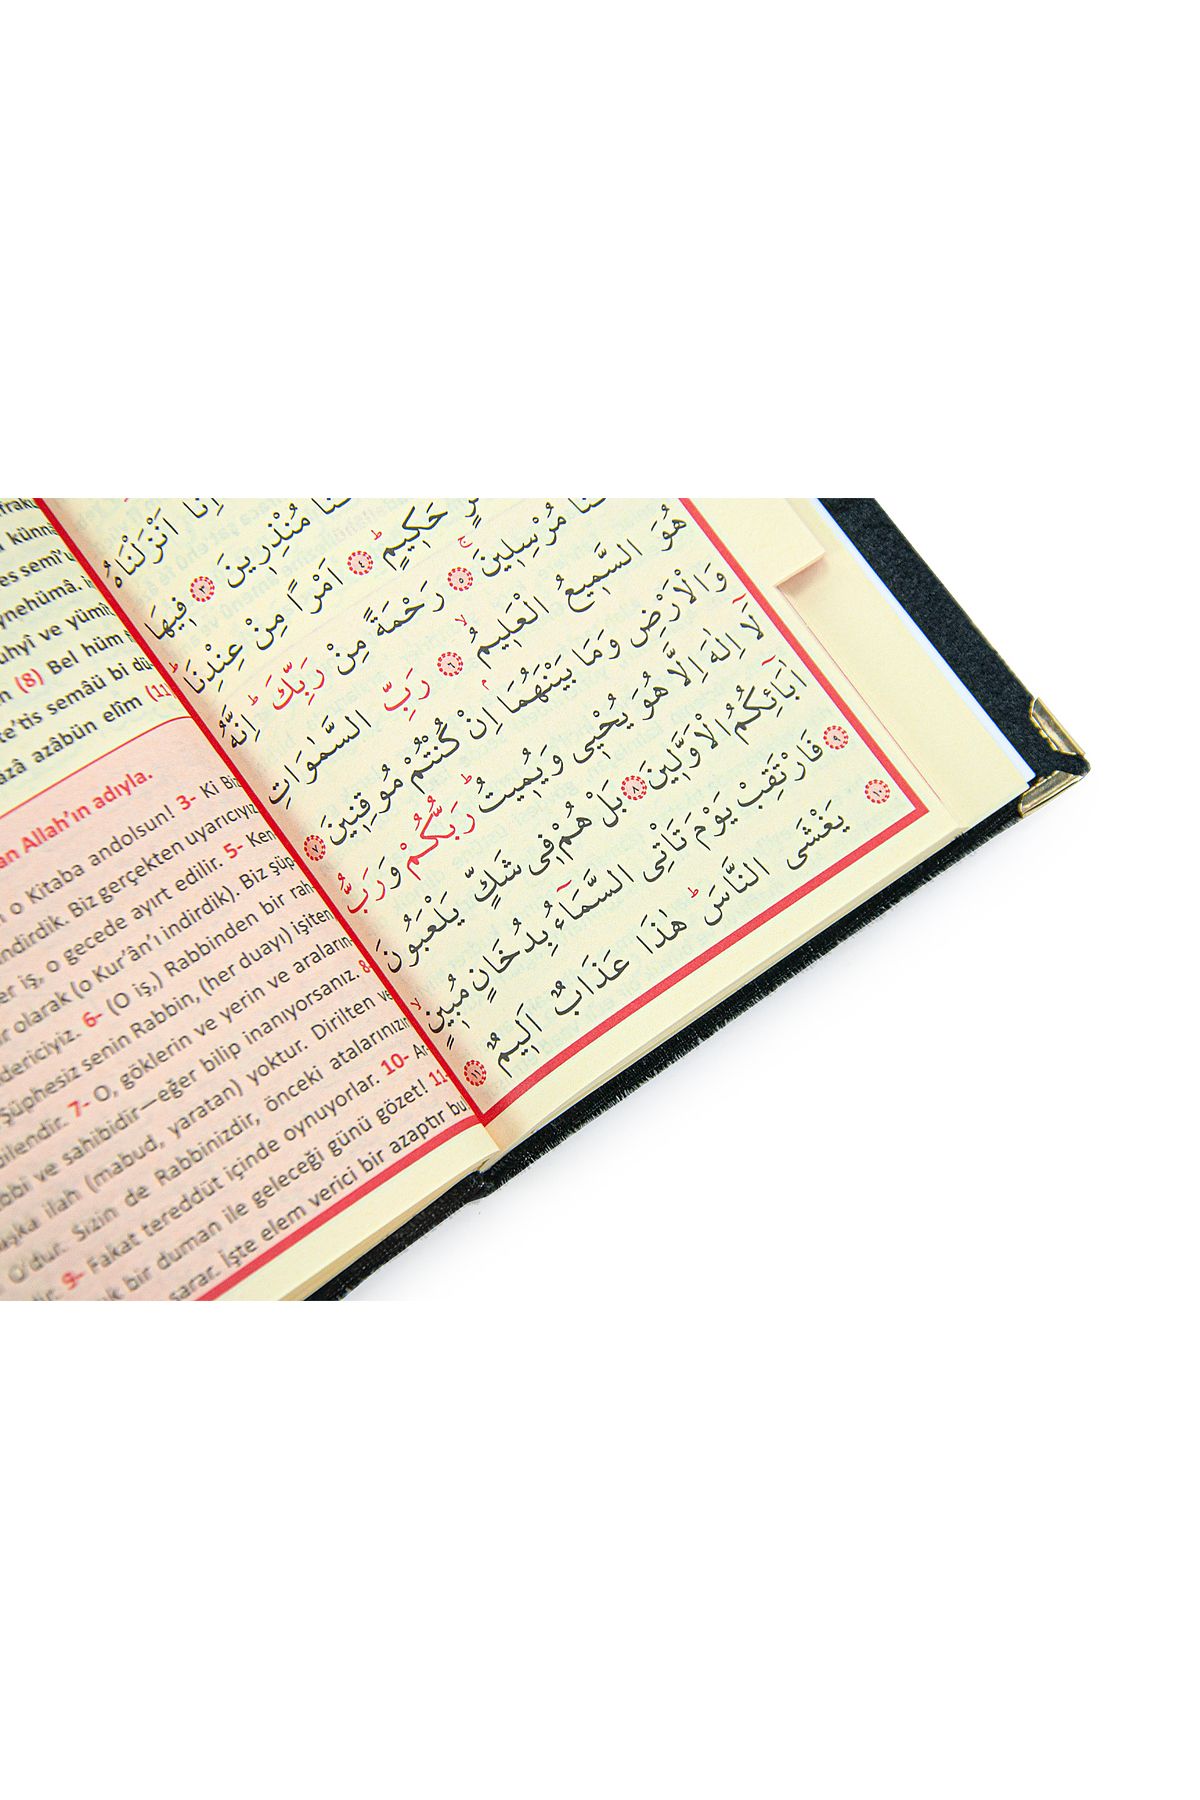 اِنَّٓا اَنْزَلْنَاهُ
مُنْذِر۪ينَ ﴿٣﴾ ف۪يهَا
حَك۪يمٍۜ ﴿٤﴾ اَمْرًا مِنْ عِنْدِنَاۜ
مُرْسِل۪ينَۚ ﴿٥﴾ رَحْمَةً مِنْ رَبِّكَۜ اِنَّهُ
هُوَ السَّم۪يعُ الْعَل۪يمُۙ ﴿٦﴾ رَبِّ السَّمٰوَاتِ
وَالْاَرْضِ وَمَا بَيْنَهُمَاۢ اِنْ كُنْتُمْ مُوقِن۪ينَ ﴿٧﴾
لَٓا اِلٰهَ اِلَّا هُوَ يُحْي۪ي وَيُم۪يتُۜ رَبُّكُمْ وَرَبُّ
اٰبَٓائِكُمُ الْاَوَّل۪ينَ ﴿٨﴾ بَلْ هُمْ ف۪ي شَكٍّ يَلْعَبُونَ
﴿٩﴾ فَارْتَقِبْ يَوْمَ تَأْتِي السَّمَٓاءُ بِدُخَانٍ مُب۪ينٍۙ
﴿١٠﴾ يَغْشَى النَّاسَۜ هٰذَا عَذَابٌ اَل۪يمٌ ﴿١١﴾
künnâ
es semî'u
ynehümâ. İ
uhyî ve yümît
(8) Bel hüm
te'tis semâü bi dü
azâ azâbün elîm (11)
an Allah'ın adıyla.
o Kitaba andolsun! 3- Ki Biz
indirdik. Biz gerçekten uyarıcıyız
er iş, o gecede ayırt edilir. 5- Ken
r olarak (o Kur'ân'ı indirdik). Biz şüp
dericiyiz. 6- (O iş,) Rabbinden bir rah
Şüphesiz senin Rabbin, (her duayı) işiten
bilendir. 7- O, göklerin ve yerin ve araların
bbi ve sahibidir—eğer bilip inanıyorsanız. 8-
aşka ilah (mabud, yaratan) yoktur. Dirilten ve
O'dur. Sizin de Rabbinizdir, önceki atalarınızın
dir. 9- Fakat tereddüt içinde oynuyorlar. 10- Ar
k bir duman ile geleceği günü gözet! 11-
sarar. İşte elem verici bir azaptır bu